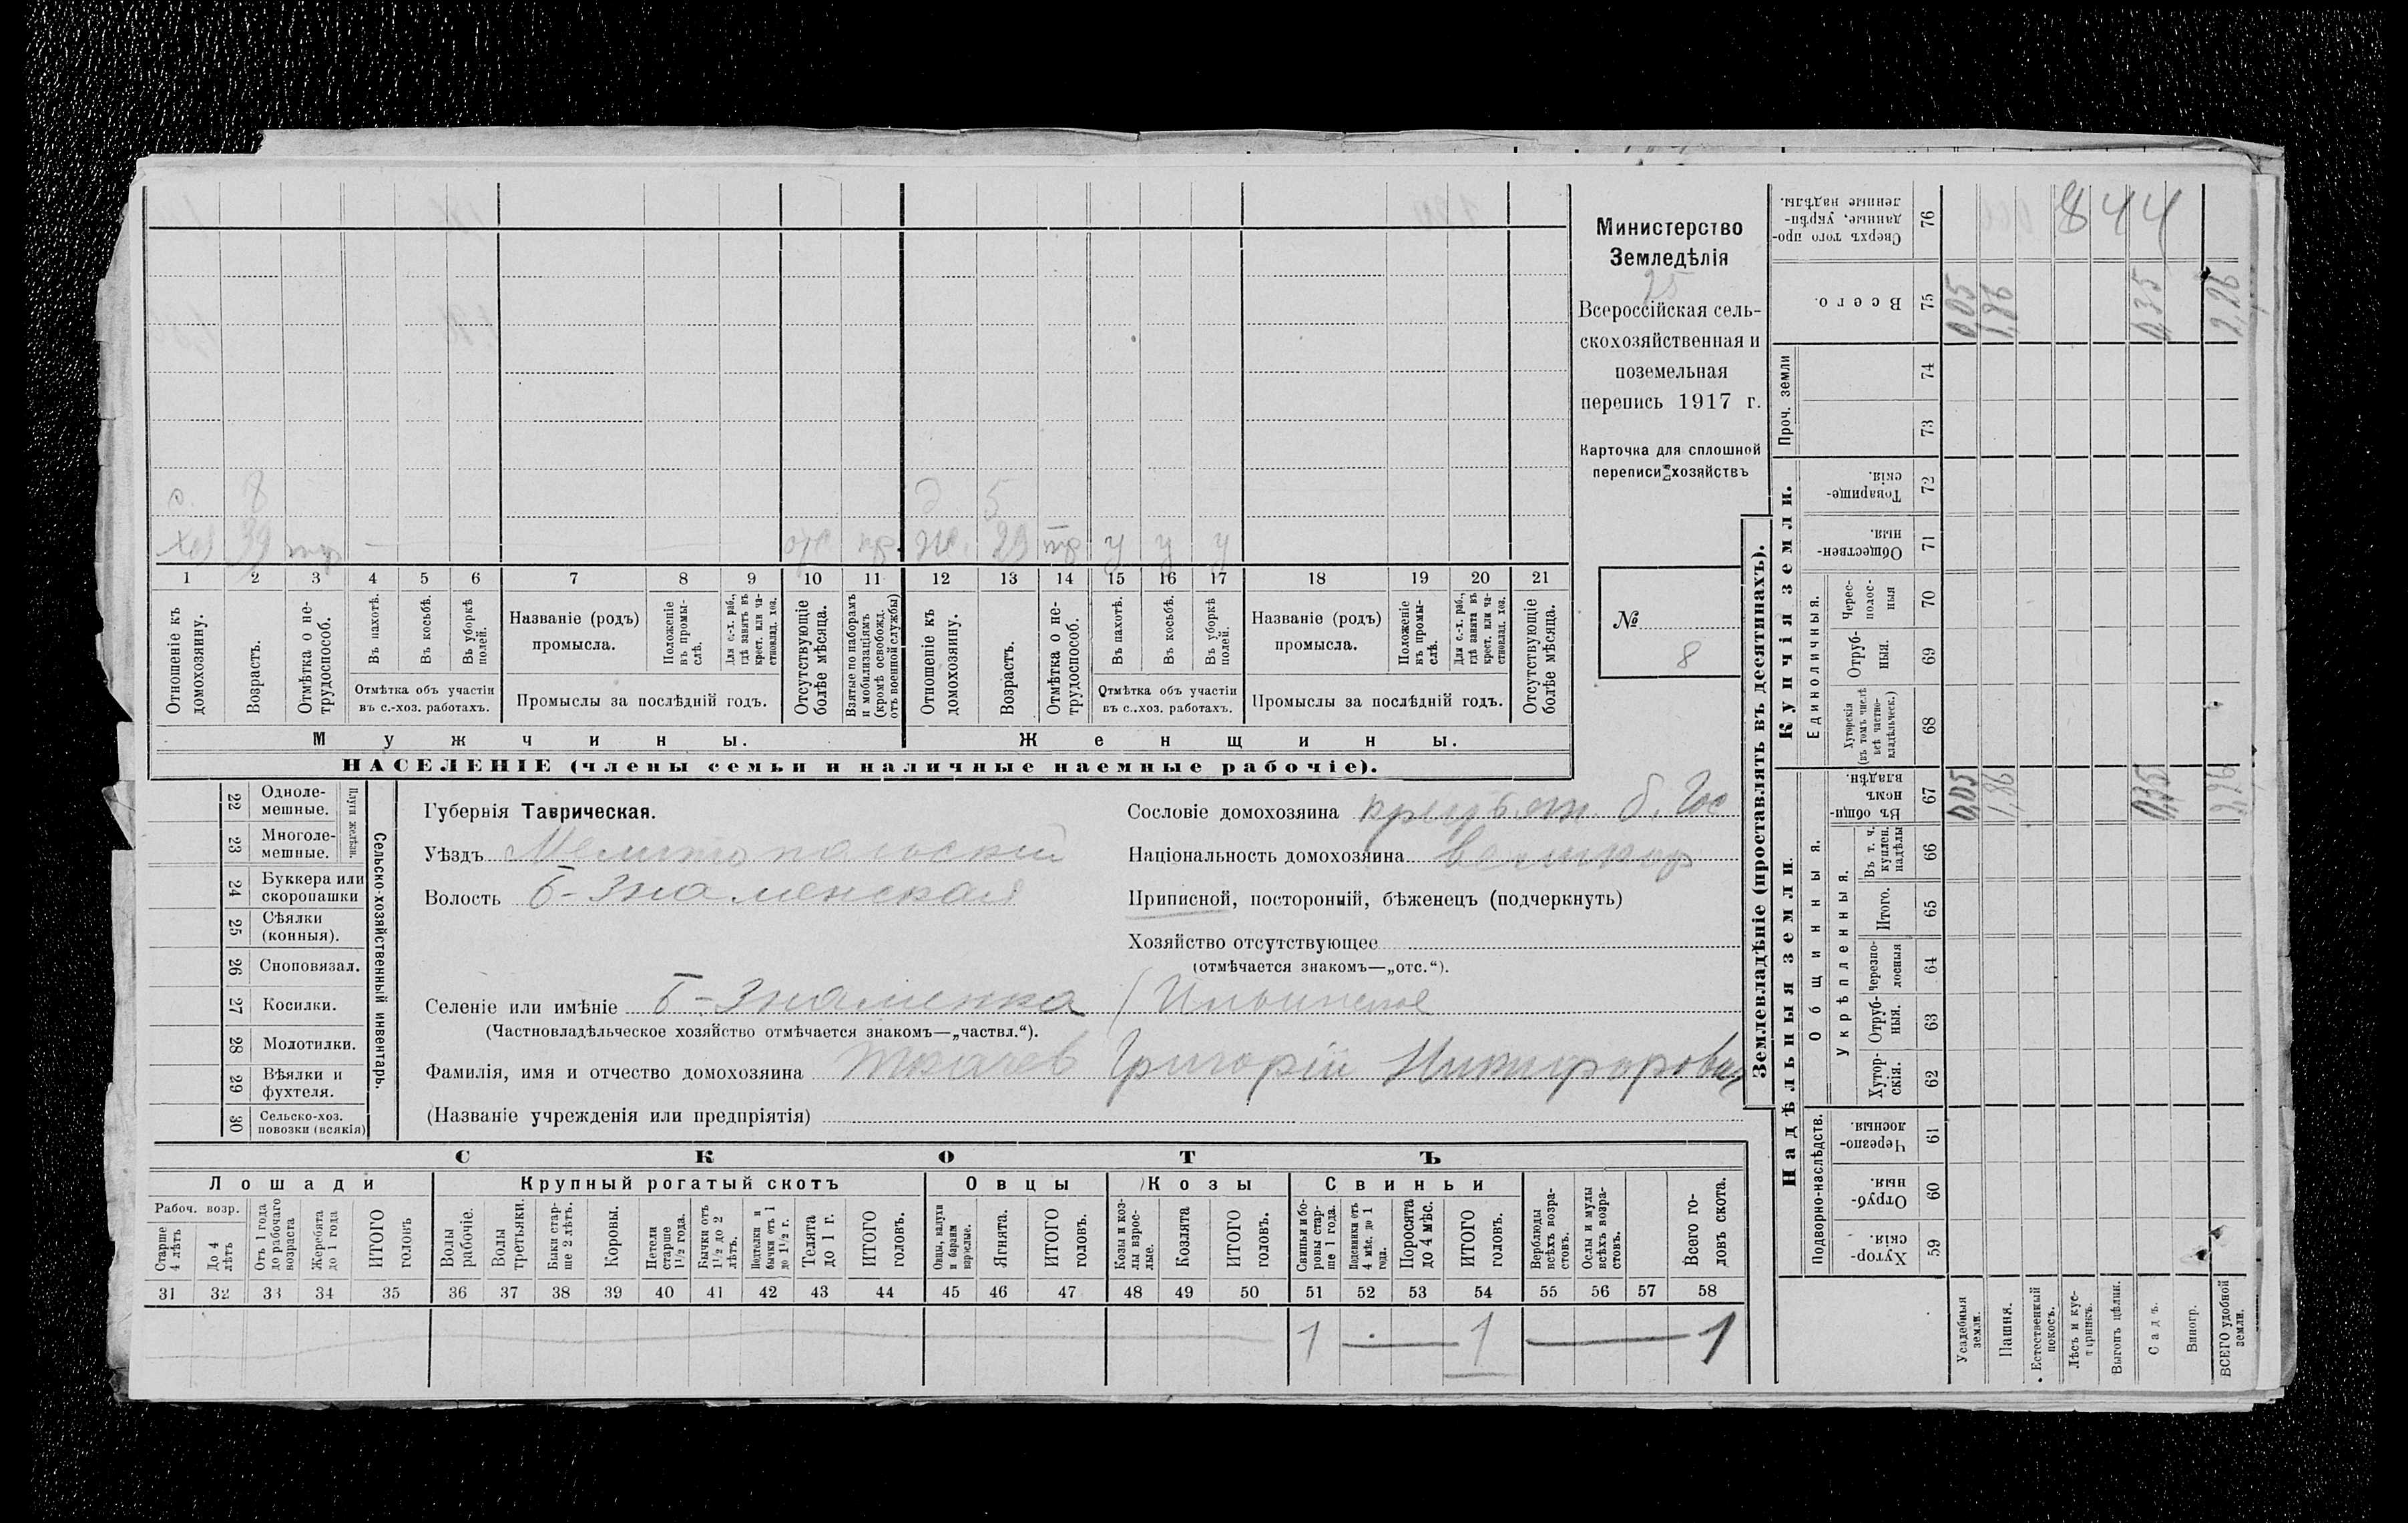 844
с. 8 д 5
хоз 39 тр — отс пр. ж. 29 тр у у у
1 2 3 4 5 6 7 8 9 10 11 12 13 14 15 16 17 18 19 20 21
Отношеніе къ домохозяину.
Возрастъ.
Отмѣтка о не-трудоспособ.
Въ пахотѣ.
Въ косьбѣ.
Въ уборкѣ полей.
Отмѣтка объ участіи
въ с.-хоз. работахъ.
Названіе (родъ)
промысла.
Положеніе въ промы-слѣ.
Для с.-х. раб., гдѣ занятъ въ крест. или ча-стновлад. хоз.
Промыслы за послѣдній годъ.
Отсутствующіе болѣе мѣсяца.
Взятые по наборамъ и мобилизаціямъ (кромѣ освобожд. отъ военной службы)
Отношеніе къ домохозяину.
Возрастъ.
Отмѣтка о не-трудоспособ.
Въ пахотѣ.
Въ косьбѣ.
Въ уборкѣ полей.
Отмѣтка объ участіи
въ с..хоз. работахъ.
Названіе (родъ)
промысла.
Положеніе въ промы-слѣ.
Для с.-х. раб., гдѣ занята въ крест. или ча-стновлад. хоз.
Промыслы за послѣдній годъ.
Отсутствующіе болѣе мѣсяца.
Мужчины. Женщины.
НАСЕЛЕНІЕ (члены семьи и наличные наемные рабочіе).
Министерство
Земледѣлія
25
Всероссійская сель-
скохозяйственная и
поземельная
перепись 1917 г.
Карточка для сплошной
переписи хозяйствъ
№
8
22 Одноле-мешные.
23 Многоле-мешные.
Плуги желѣзн.
24 Буккера или скоропашки
25 Сѣялки (конныя).
26 Сноповязал.
27 Косилки.
28 Молотилки.
29 Вѣялки и фухтеля.
30 Сельско-хоз. повозки (всякія)
Сельско-хозяйственный инвентарь.
Губернія Таврическая.
Уѣздъ Мелитопольскій
Волость Б-Знаменская
Сословіе домохозяина крестьян. б. Гос
Національность домохозяина великор
Приписной, посторонній, бѣженецъ (подчеркнуть)
Хозяйство отсутствующее
(отмѣчается знакомъ—„отс.“).
Селеніе или имѣніе Б-Знаменка / Ильинское
(Частновладѣльческое хозяйство отмѣчается знакомъ—„частвл.“).
Фамилія, имя и отчество домохозяина Ткачев Григорій Никифорович
(Названіе учрежденія или предпріятія)
СКОТЪ
Лошади Крупный рогатый скотъ Овцы Козы Свиньи
Рабоч. возр.
Старше 4 лѣтъ
До 4 лѣтъ
Отъ 1 года до рабочаго возраста
Жеребята до 1 года
ИТОГО головъ
Волы рабочіе.
Волы третьяки.
Быки стар-ше 2 лѣтъ.
Коровы.
Нетели старше 1½ года.
Бычки отъ 1½ до 2 лѣтъ.
Подтелки и бычки отъ 1 до 1½ г.
Телята до 1 г.
ИТОГО головъ.
Овцы, валухи и бараны взрослые.
Ягнята.
ИТОГО головъ.
Козы и коз-лы взрос-лые.
Козлята
ИТОГО головъ.
Свиньи и бо-ровы стар-ше 1 года.
Подсвинки отъ 4 мѣс. до 1 года.
Поросята до 4 мѣс.
ИТОГО головъ.
Верблюды всѣхъ возра-стовъ.
Ослы и мулы всѣхъ возра-стовъ.
Всего го-ловъ скота.
31 32 33 34 35 36 37 38 39 40 41 42 43 44 45 46 47 48 49 50 51 52 53 54 55 56 57 58
1 — 1 — 1
Землевладѣніе (проставлять въ десятинахъ).
Надѣльныя земли.
Купчія земли.
Проч. земли
Подворно-наслѣдств.
Общинныя.
Укрѣпленныя.
Единоличныя.
Хутор-скія. 59
Отруб-ныя. 60
Черезпо-лосныя 61
Хутор-скія. 62
Отруб-ныя. 63
Черезпо-лосныя 64
Итого. 65
Въ т. ч. куплен. надѣлы 66
Въ общин-номъ владѣн. 67
Хуторскія (въ томъ числѣ всѣ частно-владѣльческ.) 68
Отруб-ныя. 69
Черес-полос-ныя 70
Обществен-ныя. 71
Товарище-скія. 72
73
74
Всего. 75
Сверхъ того про-данные, укрѣп-ленные надѣлы. 76
Усадебныя земли. 0,05 0,05
Пашня. 1,86 1,86
Естественный покосъ.
Лѣсъ и кус-тарникъ.
Выгонъ цѣлин.
Садъ. 0,35 0,35
Виногр.
ВСЕГО удобной земли. 2,26 2,26